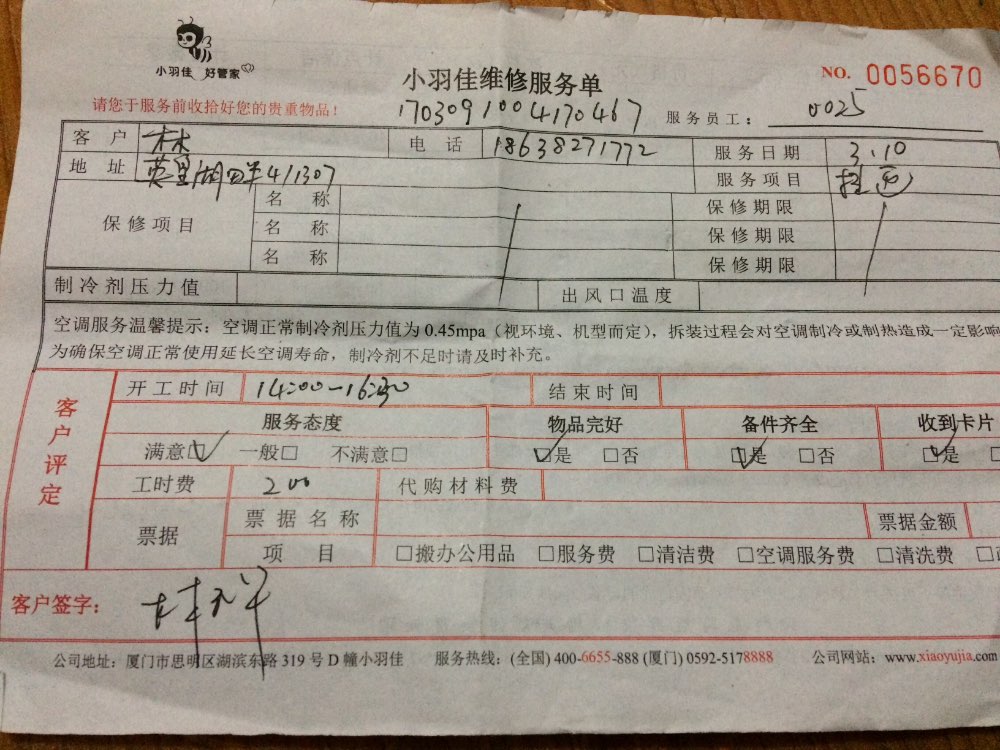 小羽佳 好管家
小羽佳维修服务单
NO. 0056670
请您于服务前收拾好您的贵重物品!
1703091004170467
服务员工: 0025
客户 林 电话 18638271772 服务日期 3.10
地址 41307 服务项目
保修项目 名称 保修期限
名称 保修期限
名称 保修期限
制冷剂压力值 出风口温度
空调服务温馨提示: 空调正常制冷剂压力值为 0.45mpa (视环境、机型而定), 拆装过程会对空调制冷或制热造成一定影响
为确保空调正常使用延长空调寿命, 制冷剂不足时请及时补充。
客户评定
开工时间 14:00-16:30 结束时间
服务态度 物品完好 备件齐全 收到卡片
满意□ 一般□ 不满意□ □是 □否 □是 □否 □是
工时费 200 代购材料费
票据 票据名称 票据金额
项目 □搬办公用品 □服务费 □清洁费 □空调服务费 □清洗费
客户签字:
公司地址: 厦门市思明区湖滨东路 319 号 D 幢小羽佳 服务热线: (全国) 400-6655-888 (厦门) 0592-5178888 公司网站: www.xiaoyujia.com